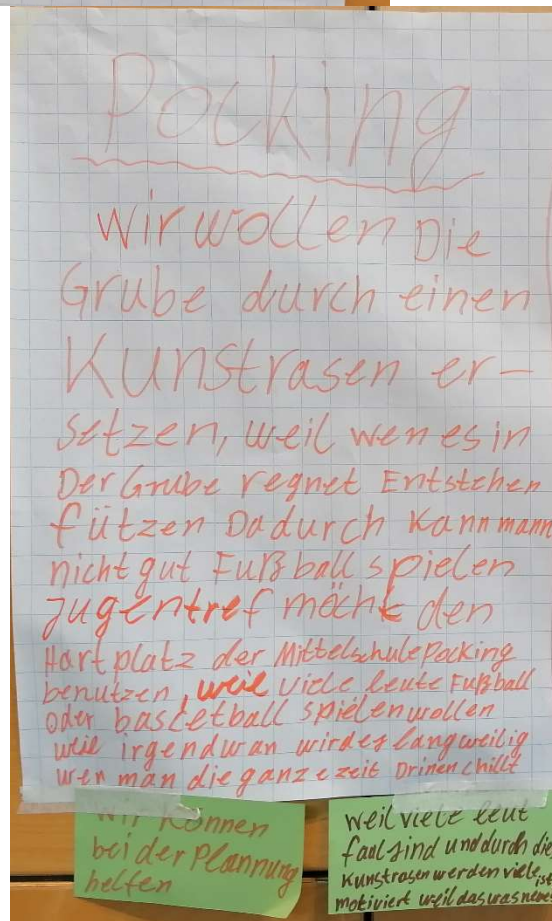 Pocking
Wir wollen Die
Grube durch einen
Kunstrasen er-
setzen, weil wen es in
Der Grube regnet Entstehen
fützen Dadurch Kann mann
nicht gut Fußball spielen
Jugentref möcht den
Hartplatz der Mittelschule Pocking
benutzen, weil viele leute Fußball
oder bascetball spielen wollen
weil irgendwan wird es langweilig
wen man die ganze zeit Drinen chillt
Wir können
bei der Plannung
helfen
weil viele leut
faul sind und durch die
Kunstrasen werden viele
motiviert weil das was neues ist